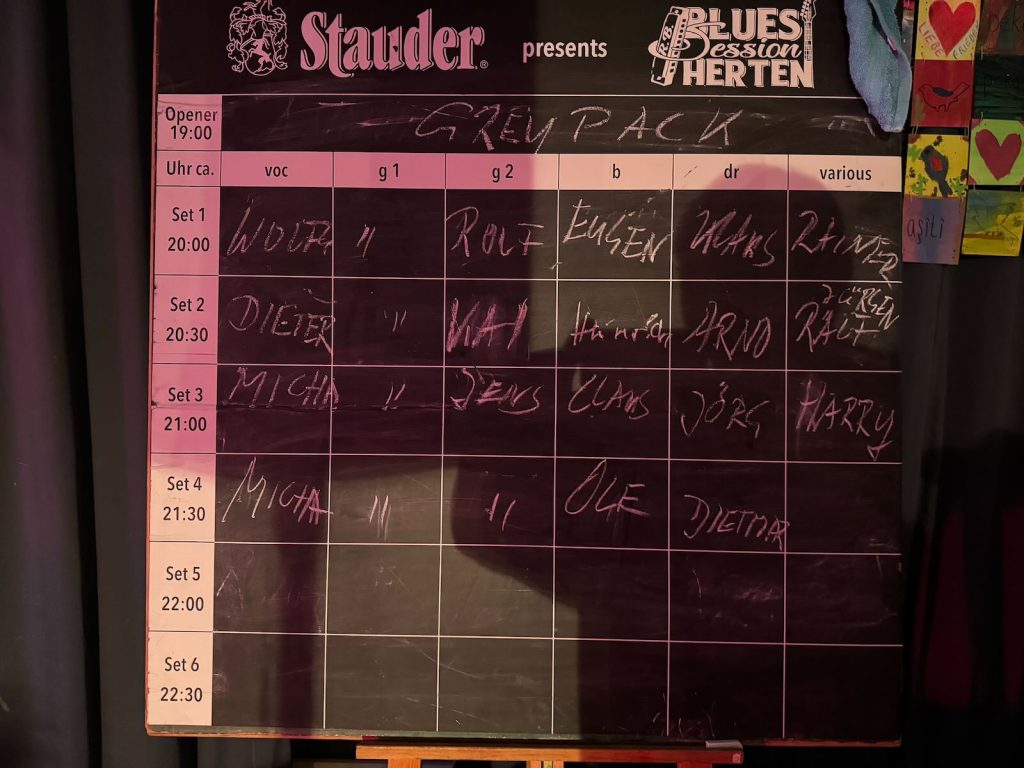 Stauder® presents BLUES Session HERTEN
Opener 19:00 GREYPACK
Uhr ca. voc g 1 g 2 b dr various
Set 1 20:00 WOLFG " ROLF EUGEN KLAUS RAINER
Set 2 20:30 DIETER " KAI Hinrich ARNO JÜRGEN RALF
Set 3 21:00 MICHA " JENS CLAUS JÖRG HARRY
Set 4 21:30 MICHA " " OLE DIETMAR
Set 5 22:00
Set 6 22:30
LIEBE
FRIEDE
aşîtî